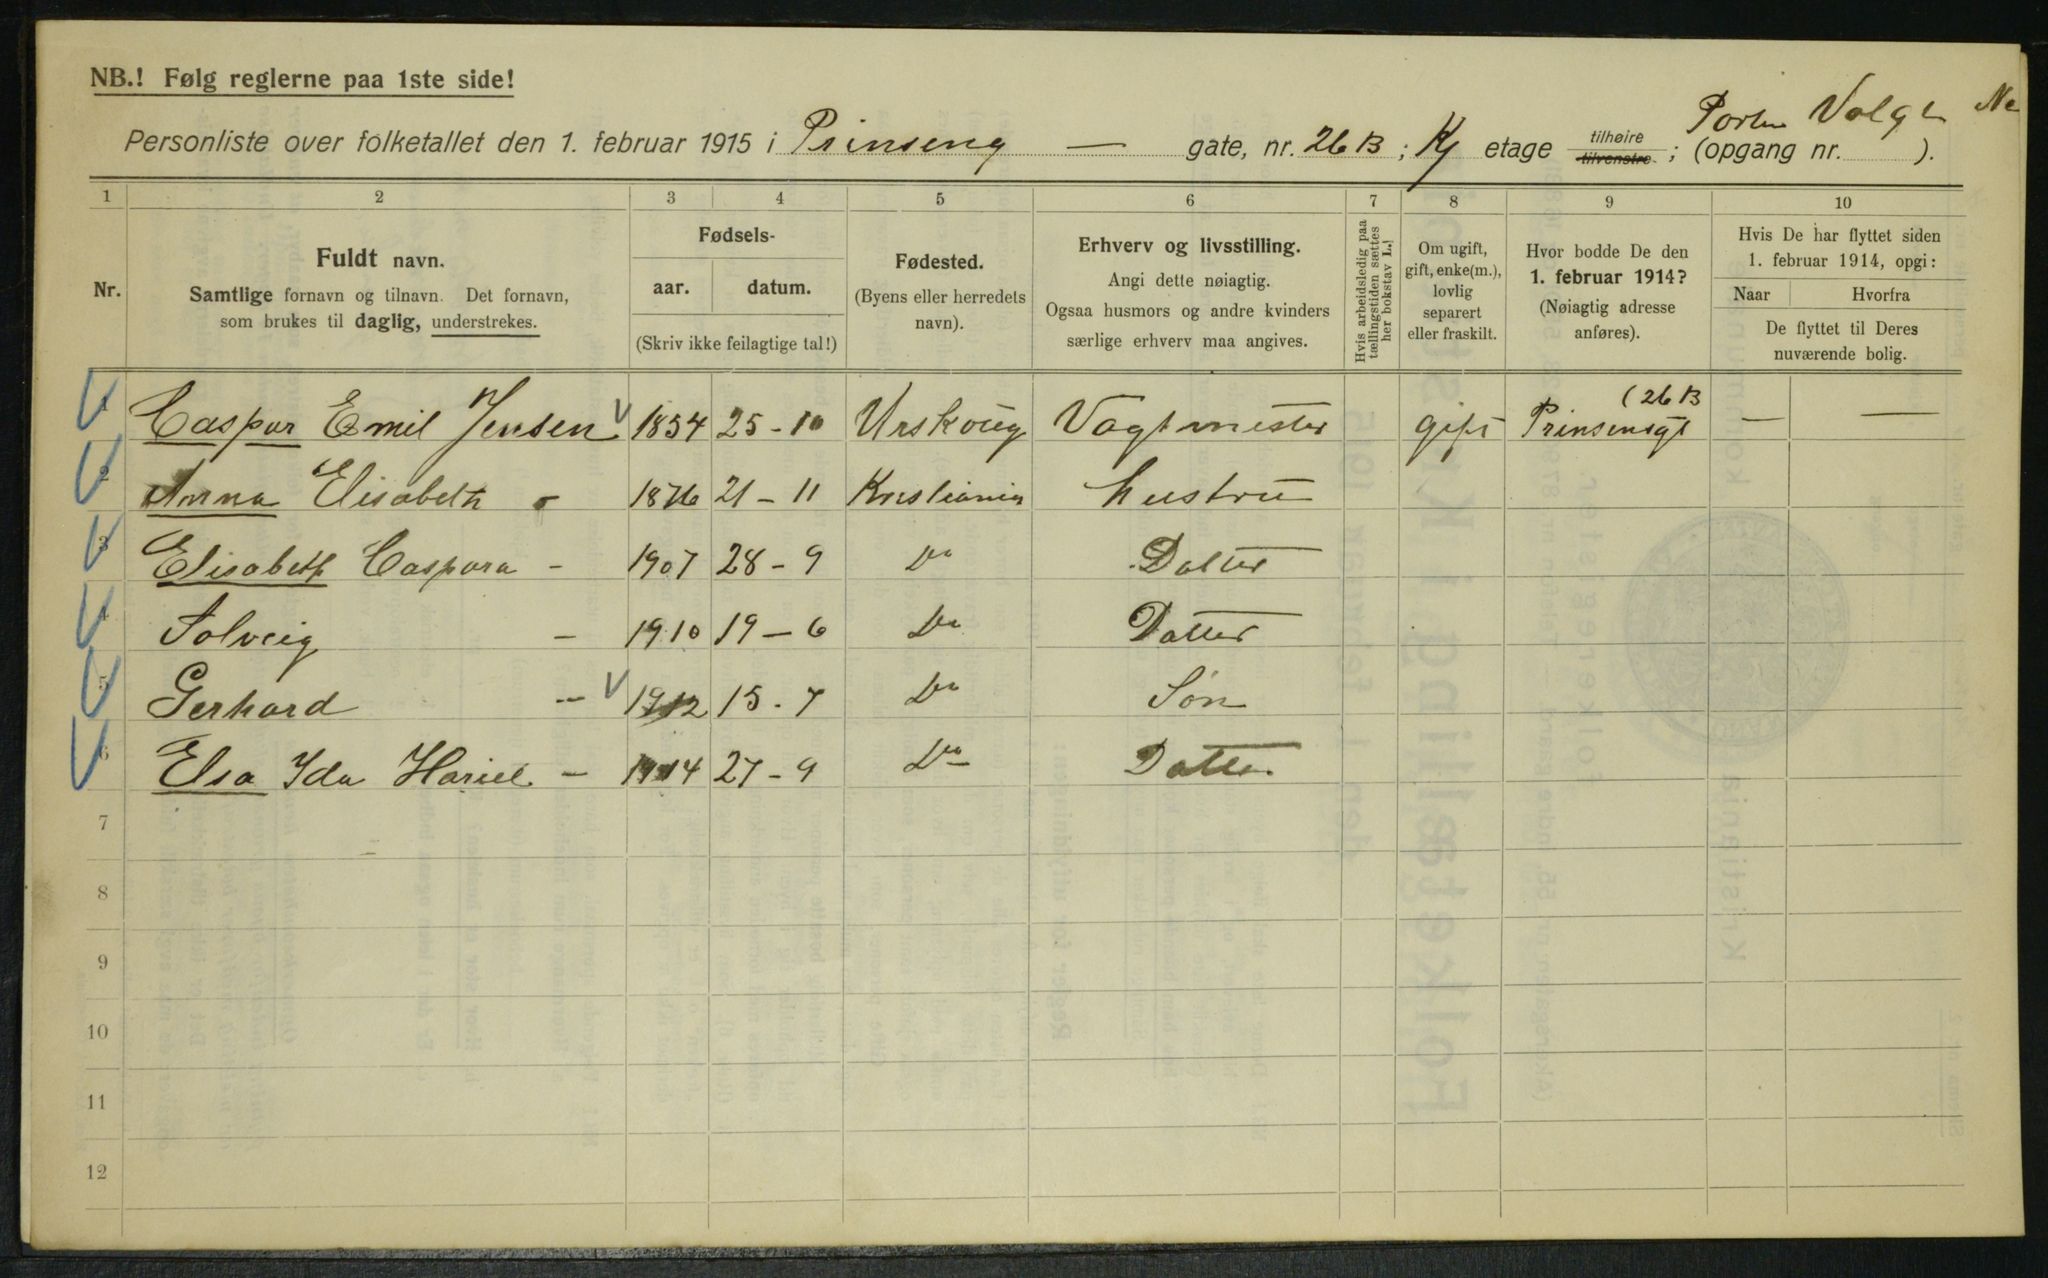 NB.! Følg reglerne paa 1ste side!
Porten Volgt
Personliste over folketallet den 1. februar 1915 i Prinseng — gate, nr. 26 B; Kj etage tilhøire tilvenstre; (opgang nr. ).
1 2 3 4 5 6 7 8 9 10
Nr.
Fuldt navn.
Samtlige fornavn og tilnavn. Det fornavn,
som brukes til daglig, understrekes.
Fødsels-
aar. datum.
(Skriv ikke feilagtige tal!)
Fødested.
(Byens eller herredets
navn).
Erhverv og livsstilling.
Angi dette nøiagtig.
Ogsaa husmors og andre kvinders
særlige erhverv maa angives.
Hvis arbeidsledig paa
tællingstiden sættes
her bokstav L.!
Om ugift,
gift, enke(m.),
lovlig
separert
eller fraskilt.
Hvor bodde De den
1. februar 1914?
(Nøiagtig adresse
anføres).
Hvis De har flyttet siden
1. februar 1914, opgi:
Naar Hvorfra
De flyttet til Deres
nuværende bolig.
1 Caspar Emil Jensen 1854 25-10 Urskoug Vagtmester gift Prinsensgt (26 B — —
2 Anna Elisabeth - 1876 21-11 Kristiania hustru
3 Elisabeth Caspara - 1907 28-9 Do Datter
4 Solveig - 1910 19-6 Do Datter
5 Gerhard - 1912 15-7 Do Søn
6 Elsa Ida Hariet - 1914 27-9 Do Datter
7
8
9
10
11
12